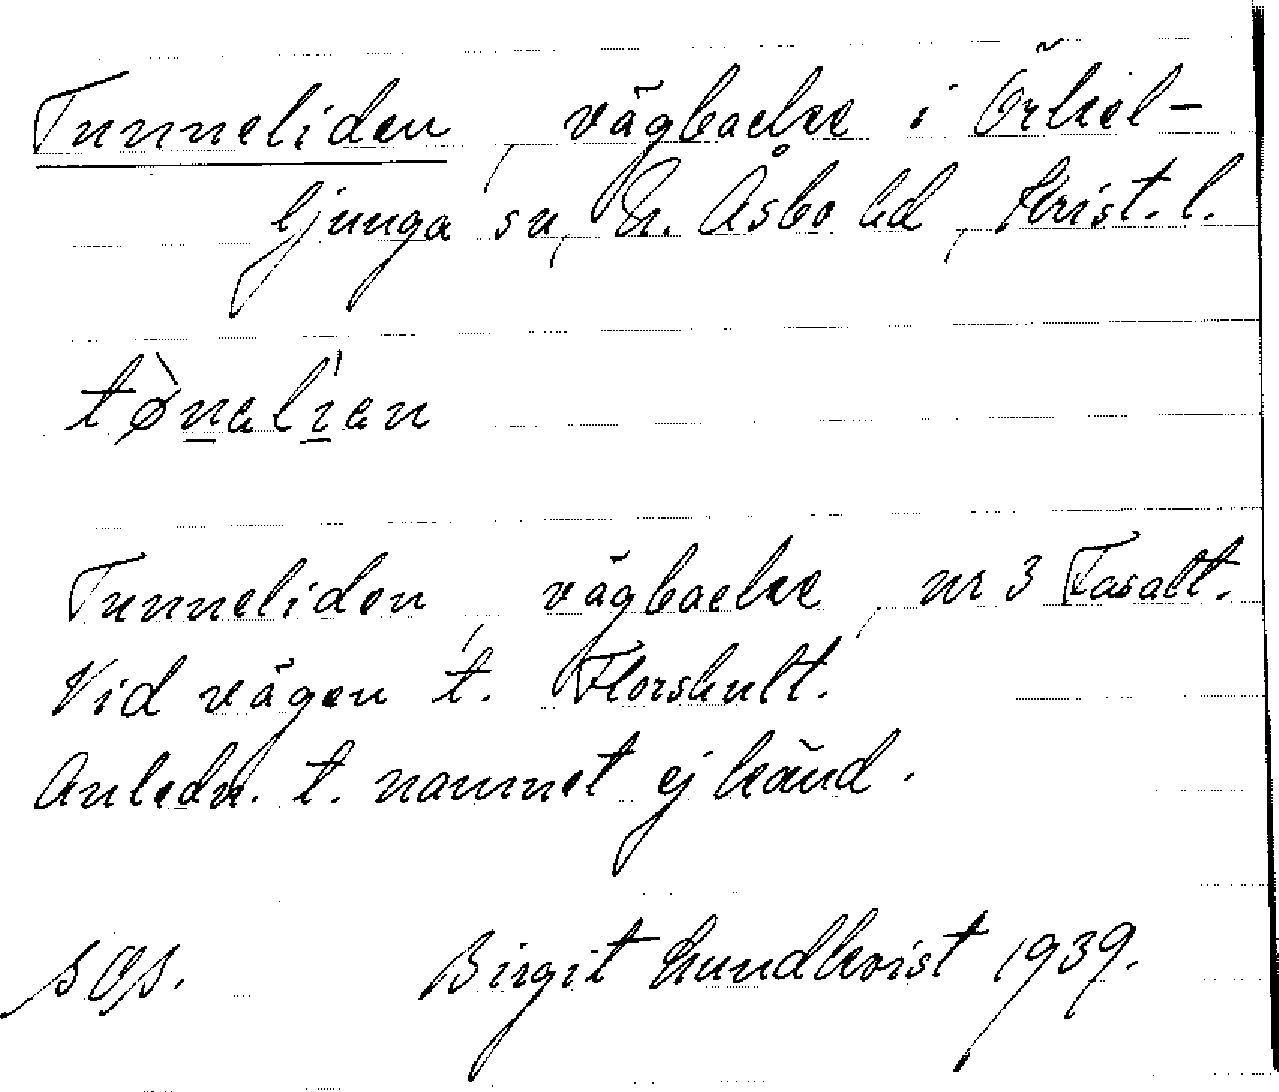 Tunneliden, vägbacke i Örkel-
ljunga sn, N. Åsbo hd, Krist. l.
tø̀nelíen
Tunneliden, vägbacke, nr 3 Fasalt.
Vid vägen t. Florshult.
Anledn. t. namnet ej känd.
sOp. Birgit Lundkvist 1939.